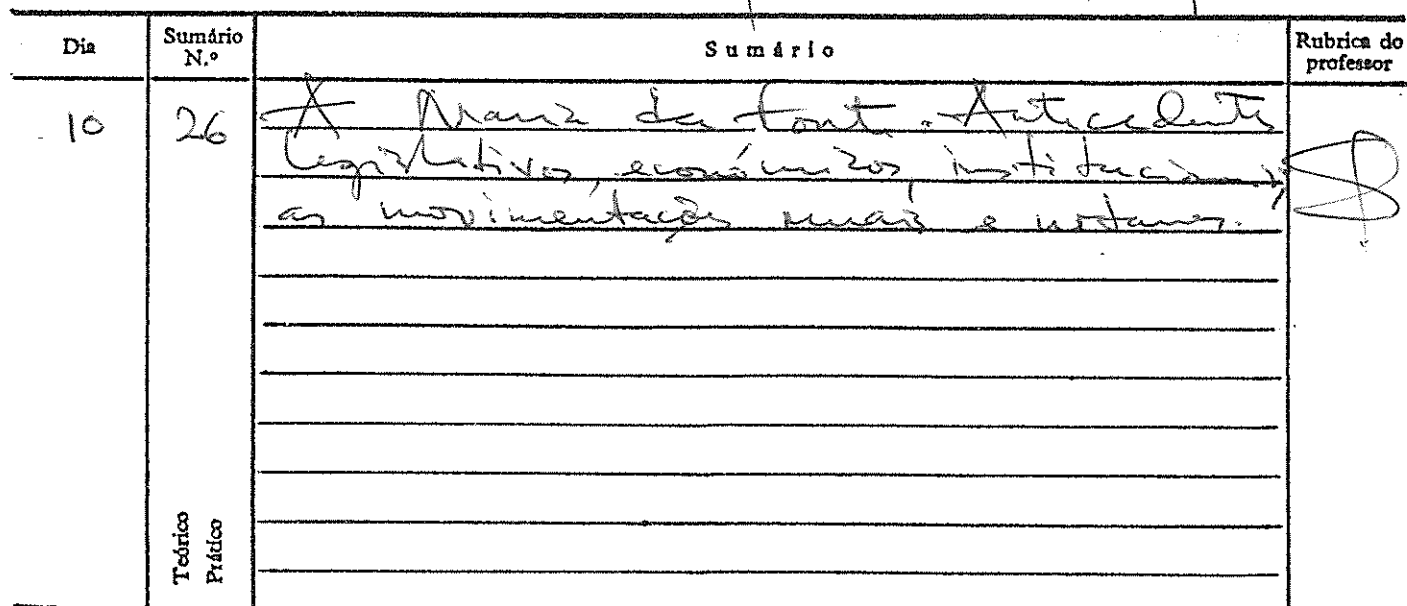 Dia
Sumário
N.º
Sumário
Rubrica do
professor
10
26
A Maria da Fonte. Antecedentes
legislativos, económicos, institucionais;
as movimentações rurais e urbanas.
Teórico
Prático